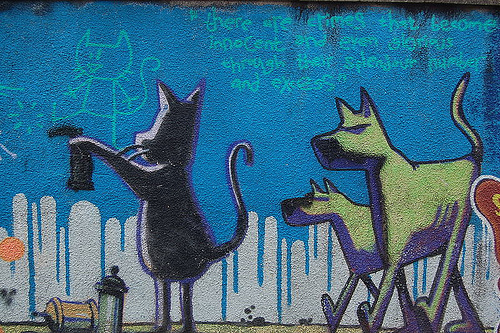 "there are crimes that become
innocent and even glorious
through their splendour, number
and excess"